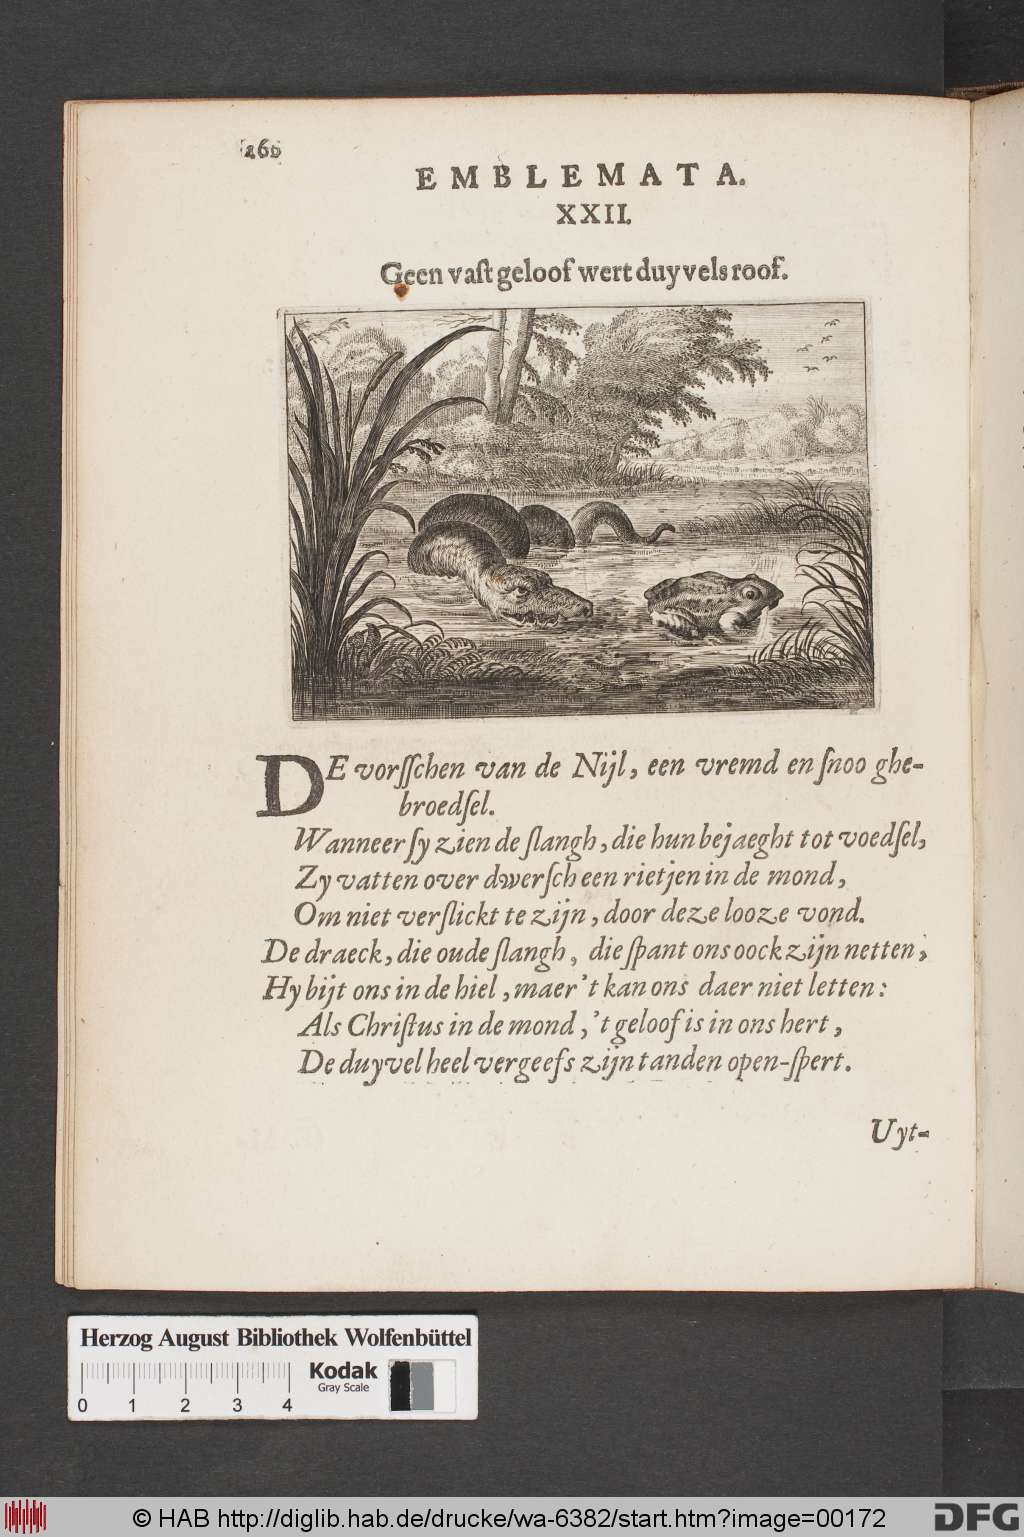 160
EMBLEMATA.
XXII.
Geen vaſt geloof wert duyvels roof.
DE vorſſchen van de Nijl, een vremd en ſnoo ghe-
broedſel.
Wanneer ſy zien de ſlangh, die hun bejaeght tot voedſel,
Zy vatten over dwerſch een rietjen in de mond,
Om niet verſlickt te zijn, door deze looze vond.
De draeck, die oude ſlangh, die ſpant ons oock zijn netten;
Hy bijt ons in de hiel, maer 't kan ons daer niet letten:
Als Chriſtus in de mond, 't geloof is in ons hert,
De duyvel heel vergeefs zijn tanden open-ſpert.
Uyt-
Herzog August Bibliothek Wolfenbüttel
Kodak
Gray Scale
0 1 2 3 4
© HAB http://diglib.hab.de/drucke/wa-6382/start.htm?image=00172
DFG